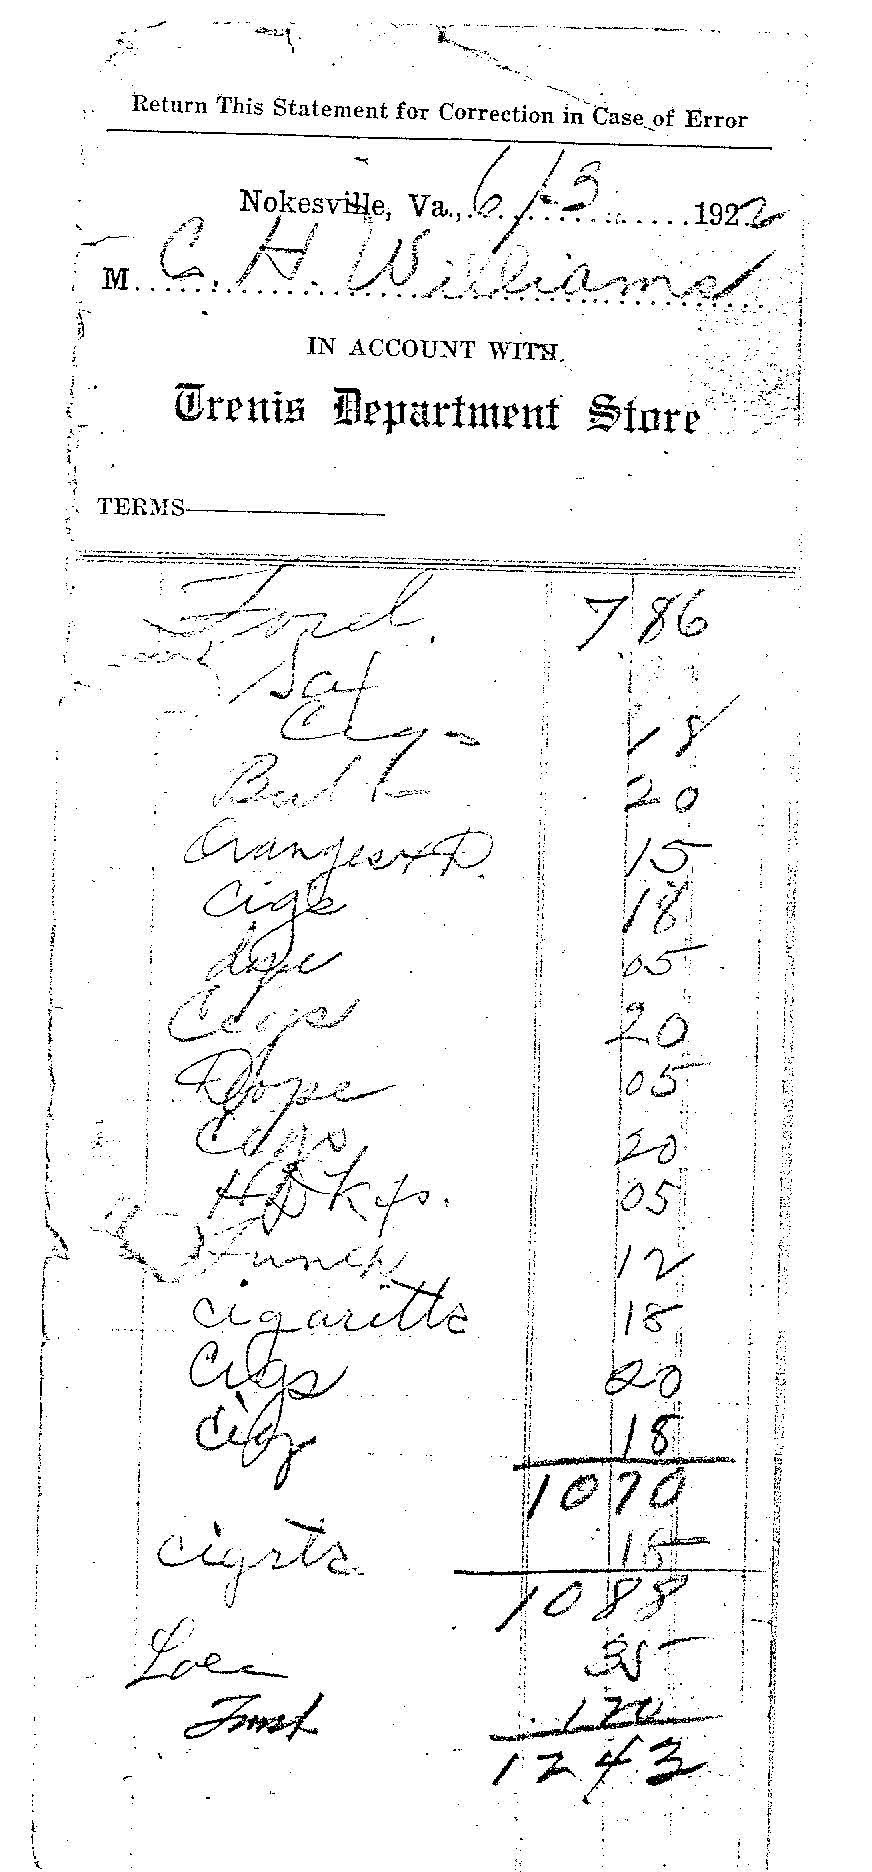 Return This Statement for Correction in Case of Error
Nokesville, Va., 6/3 1922
M C. H. Williams
IN ACCOUNT WITH
Trenis Department Store
TERMS
Ford. 7 86
Cigs 18
20
Oranges + D. 15
Cigs 18
dope 05
Cegs 20
Dope 05
Cegs 20
HDKfs. 05
Lunch 12
cigaritts 18
Cigs 20
Cig 18
10 70
cigrts
10 88
35
1 20
12 43